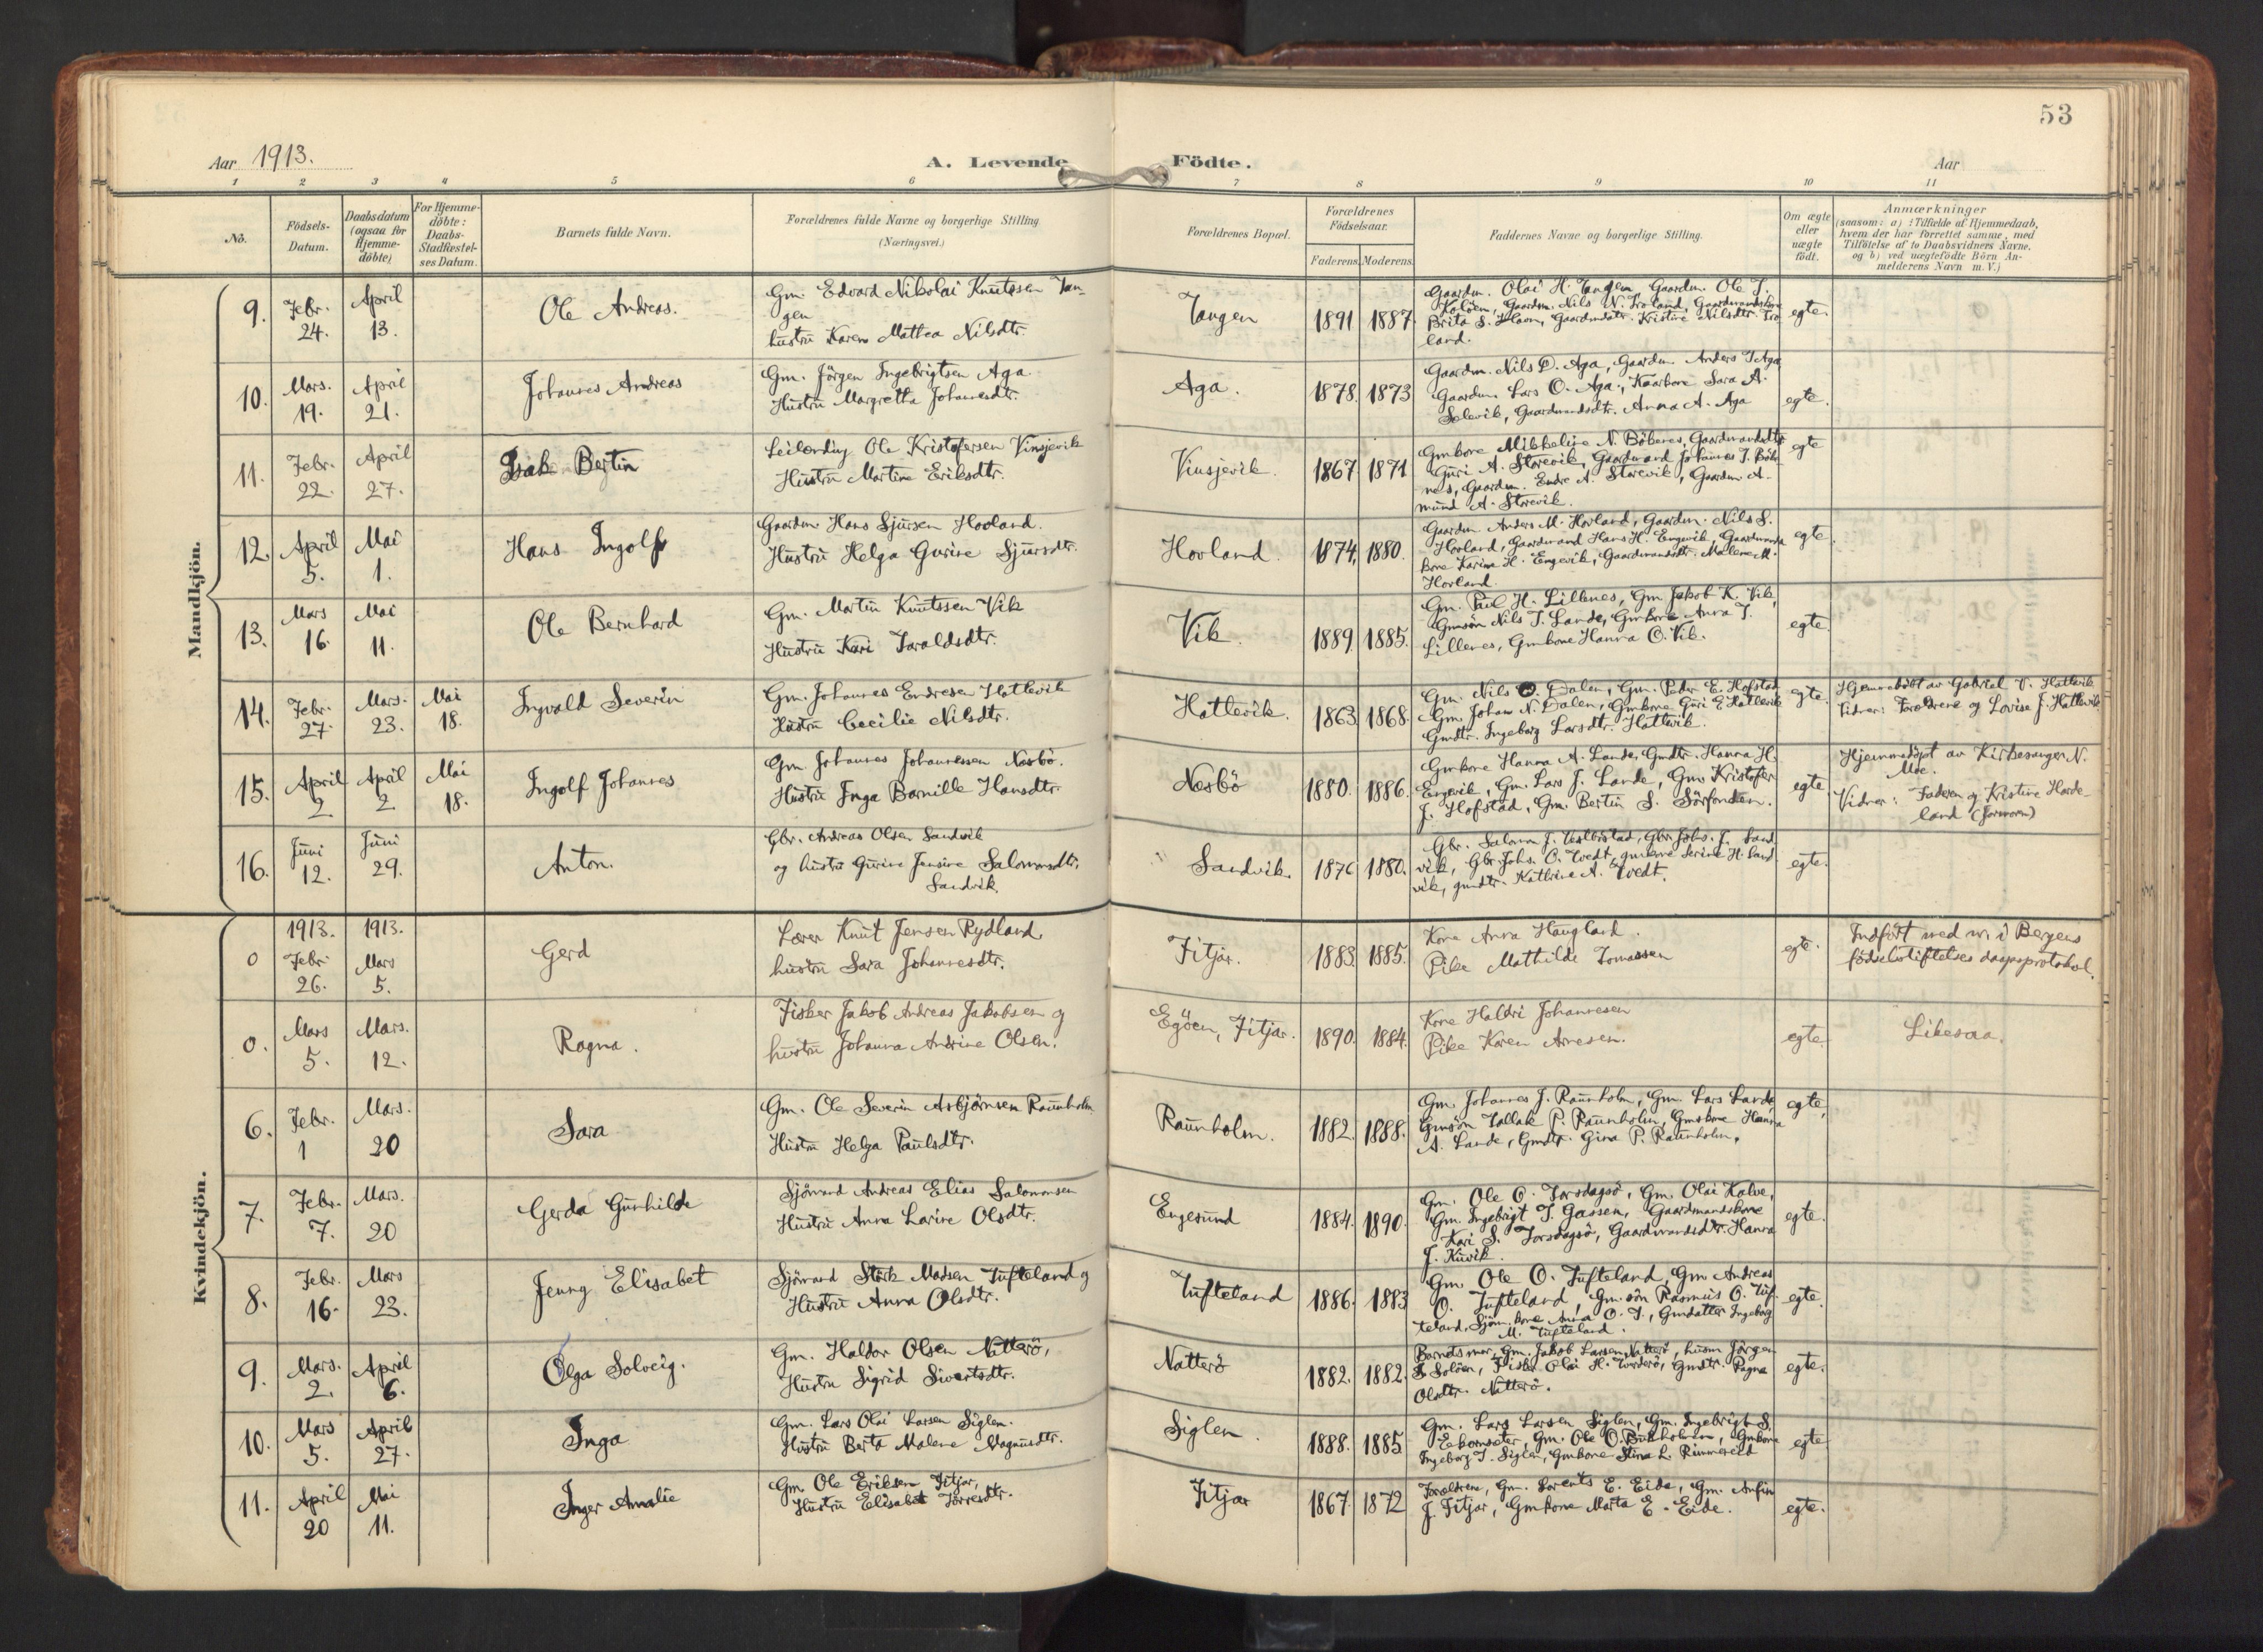 53
Aar 1913.
A. Levende Födte.
Aar
1 2 3 4 5 6 7 8 9 10 11
No.
Födsels-
Datum.
Daabsdatum
(ogsaa for
Hjemme-
döbte)
For Hjemme-
döbte:
Daabs-
Stadfæstel-
ses Datum.
Barnets fulde Navn.
Forældrenes fulde Navne og borgerlige Stilling
(Næringsvei.)
Forældrenes Bopæl.
Forældrenes
Födselsaar.
Faderens. Moderens.
Faddernes Navne og borgerlige Stilling.
Om ægte
eller
uægte
födt.
Anmærkninger
(saasom: a) i Tilfælde af Hjemmedaab,
hvem der har forrettet samme, med
Tilföielse af to Daabsvidners Navne.
og b) ved uægtefödte Börn An-
melderens Navn m. V.)
Mandkjön.
9.
Febr.
24.
April
13.
Ole Andreas.
Gm. Edvard Nikolai Knutssen Tan-
gen
hustru Karen Mathea Nilsdtr.
Tangen
1891 1887.
Gaardm. Olai H. Tangen, Gaardm. Ole J.
Gaardm. Nils N. Gaardmandskone
Brita S. Gaardmdatr. Kristine Nilsdtr.
land.
egte.
10.
Mars.
19.
April
21.
Johannes Andreas
Gm. Jörgen Ingebrigtsen Aga
Hustru Margretha Johannesdtr.
Aga.
1878. 1873
Gaardm. Nils D. Aga, Gaardm. Anders J Aga,
Gaardm. Lars O. Aga, Sara A.
Selevik, Gaardmandsdtr. Anna A. Aga
egte.
11.
Febr.
22.
April
27.
Isak Bertin
Leilending Ole Kristofersen Vinsjevik
Hustru Martine Eriksdtr.
Vinsjevik.
1867 1871
Gmkone Mikkeline N. Böbenes, Gaardmandsdtr
Guri A. Storevik, Gaardmand Johannes J. Böbe-
nes, Gaardm. Endre A. Storevik, Gaardm A-
mund A. Storevik.
egte
12.
April
5.
Mai
1.
Hans Ingolf
Gaardm. Hans Sjursen Hovland.
Hustru Helga Gurine Sjursdtr.
Hovland.
1874. 1880.
Gaardm Anders M. Hovland, Gaardm. Nils S.
Hovland, Gaardmand Hans H. Engevik, Gaardmands
kone Karina H. Engevik, Gaardmandsdtr. Malene M.
Hovland.
egte.
13.
Mars
16.
Mai
11.
Ole Bernhard
Gm. Martin Knutssen Vik
Hustru Kari Toraldsdtr.
Vik.
1889 1885.
Gm. Paul H. Lillenes, Gm Jakob K. Vik,
Gmsön Nils T. Lande, Gmkone Anna T.
Lillenes, Gmkone Hanna O. Vik.
egte.
14.
Febr.
27.
Mars.
23.
Mai
18.
Ingvald Severin
Gm. Johannes Endresen Hatlevik
Hustru Cecilie Nilsdtr.
Hatlevik.
1863 1868.
Gm. Nils O. Dalen, Gm. Peder E. Hofstad,
Gm. Johan N. Dalen, Gmkone Guri E Hatlevik
Gmdtr. Ingeborg Larsdtr. Hatlevik.
egte.
Hjemmedöbt av Gabriel V. Hatlevik
Vidner: Forældrene og Lovise J. Hatlevik
15.
April
2
April
2.
Mai
18.
Ingolf Johannes
Gm. Johannes Johannessen Nesbö.
Hustru Inga Barnille Hansdtr.
Nesbö
1880. 1886.
Gmkone Hanna A. Lande, Gmdtr. Hanna H.
Engevik, Gm. Lars J. Lande, Gm. Kristofer
J. Hofstad, Gm. Bertin S. Sörfonden.
egte
Hjemmedöpt av Kirkesanger N.
Moe.
Vidner: Faderen og Kristine Harde-
land (Jormorm)
16.
Juni
12.
Juni
29.
Anton.
Gbr. Andreas Olsen Sandvik
og hustru Gurine Jensine Salomonsdtr.
Sandvik.
Sandvik.
1876 1880.
Gbr. Salamon J. Vestbøstad, Gbr. Johs. J. Sand
vik, Gbr. Johs. O. Tvedt, gmkone Serine H. Sand
vik, gmdtr. Kathrine A. Tvedt.
egte.
Kvindekjön.
0
1913.
Febr.
26.
1913.
Mars
5.
Gerd
Lærer Knut Jensen Rydland
hustru Sara Johannesdtr.
Fitjar.
1883 1885.
Kone Anna Haugland.
Pike Mathilde Tomassen
egte.
Indfört med nr. i Bergens
födselsstiftelses daapsprotokol.
0.
Mars
5.
Mars.
12.
Ragna.
Fisker Jakob Andreas Jakobsen og
hustru Johanna Andrine Olsen.
Egöen, Fitjar.
1890. 1884.
Kone Haldri Johannesen
Pike Karen Arnesen.
egte.
Likesaa.
6.
Febr.
1
Mars.
20
Sara
Gm. Ole Severin Asbjörnsen Raunholm
Hustru Helga Paulsdtr.
Raunholm.
1882. 1888.
Gm. Johannes J. Raunholm, Gm. Lars Lande,
Gmsön Tallak P. Raunholm, Gmskone Hanna
A. Lande, Gmdtr. Gina P. Raunholm.
egte.
7.
Febr.
7.
Mars.
20
Gerda Gunhilde
Sjömand Andreas Elias Salomonsen
Hustru Anna Larine Olsdtr.
Engesund
1884. 1890.
Gm. Ole O. Torsdagsö, Gm. Olai Kalve,
Gm. Ingebrigt T. Gaasen, Gaardmandskone
Kari S. Torsdagsö, Gaardmandsdtr. Hanna
J. Kuvik.
egte.
8.
Febr.
16.
Mars
23.
Jenny Elisabet
Sjömand Störk Madsen Tufteland og
Hustru Anna Olsdtr.
Tufteland
1886. 1883
Gm. Ole O. Tufteland, Gm Andreas
O. Tufteland, Gm.sön Rasmus O. Tuf-
teland, Sjöm.kone Anna O. T., Gmdatter Ingeborg
M. Tufteland.
egte.
9.
Mars.
2.
April
6.
Olga Solveig.
Gm. Haldor Olsen Natterö,
Hustru Sigrid Sivertsdtr.
Natterö
1882. 1882.
Barnets mor, Gm. Jakob Larsen Natterö, husm Jörgen
S. Solöen, Fisker Olai H. Torderö, Gmdtr. Ragna
Olsdtr. Natterö.
egte.
10.
Mars
5.
April
27.
Inga
Gm. Lars Olai Larsen Siglen.
Hustru Berta Malene Magnusdtr.
Siglen
1888. 1885
Gm. Lars Larsen Siglen, Gm. Ingebrigt S.
Ekornsæter, Gm. Ole O. Gmkone
Ingeborg T. Siglen, Gmkone Stina L. Rimmereid
egte
11.
April
20
Mai
11.
Inger Amalie
Gm. Ole Eriksen Fitjar,
Hustru Elisabet Torresdtr.
Fitjar
1867 1872
Forældrene, Gm. Lorents E. Eide, Gm. Anfin
J. Fitjar, Gmkone Marta E. Eide.
egte.